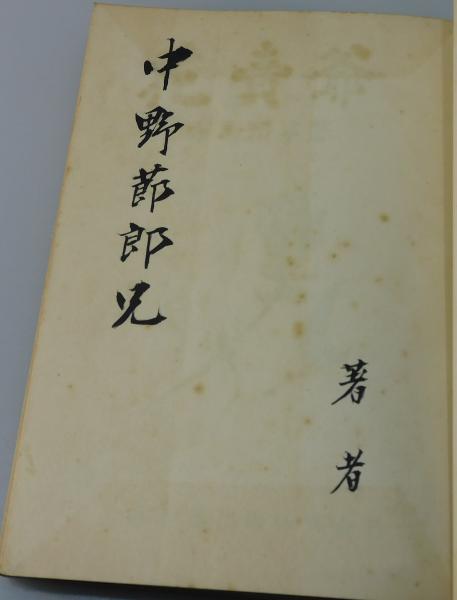 中野莭郎兄
著者